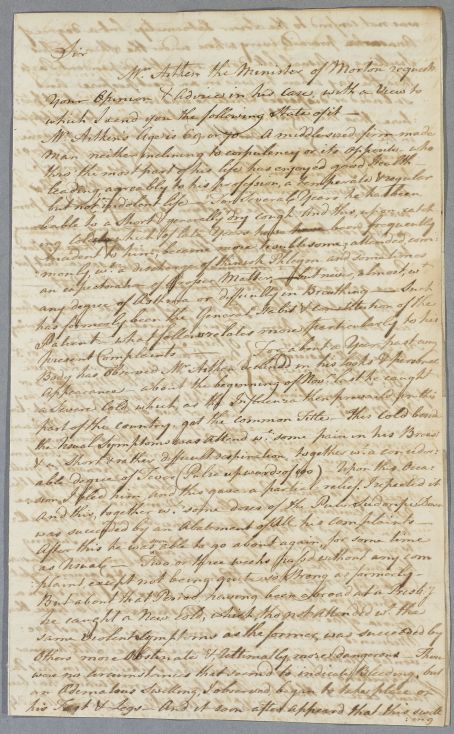 Sir
Mr. Aitken the Minister of Morton requests
Your Opinion & advice in his Case, with a View to
which I send you the following State of it —
Mr. Aitkens Age is 69 or 70 — A middle sized firm made
Man neither inclining to corpulency or its opposite, who
thro the most part of his life has enjoyed good Health
leading agreeably to his profession, a temperate & regular
but not indolent life — For several Years he has been
liable to a Short generally dry cough And this upon catch
Colds which of late Years have been frequently
incident to him; became more troublesome, attended com-
monly wt a discharge of thinish Phlegm and sometimes
an expectoration of proper Matter, but never, almost, wt
any degree of Asthma or difficulty in Breathing — Such
has formerly been the General Habit & constitution of the
Patient — what follows relates more particularly to his
present Complaints — For about a Year past every
Body has observed Mr Aitken declined in his looks & personal
Appearance — about the beginning of Novr last he caught
a Severe Cold, which as the Influenza then prevailed in this
part of the country, got the common Title — This Cold besides
the Usual Symptoms was attend wt some pain in his Breast
& a Short & rather difficult respiration, together wt a consider:
able degree of Fever (Pulse upwards of 100) Upon this Occa-
sion I bled him, and this gave a partial relief, I repeated it
And this, together wt some doses of the Pulv: Sudorif: Dover
was succeeded by an Abatement of all his complaints —
After this he was able to go about again, for some time
as Usual — Two or three weeks pass'd without any com-
plaint except not being quite so strong as formerly
But about that Period having been abroad at a
he caught a New Cold, which tho not attended wt the
same Violent Symptoms as the former, was succeeded by
Others more Obstinate & ultimately more dangerous — There
were no Circumstances that seemd to indicate Bleeding, but
an Odematous Swelling, I observed began to take place in
his Feet & Legs — And it soon after appeard that this swell-
:ing